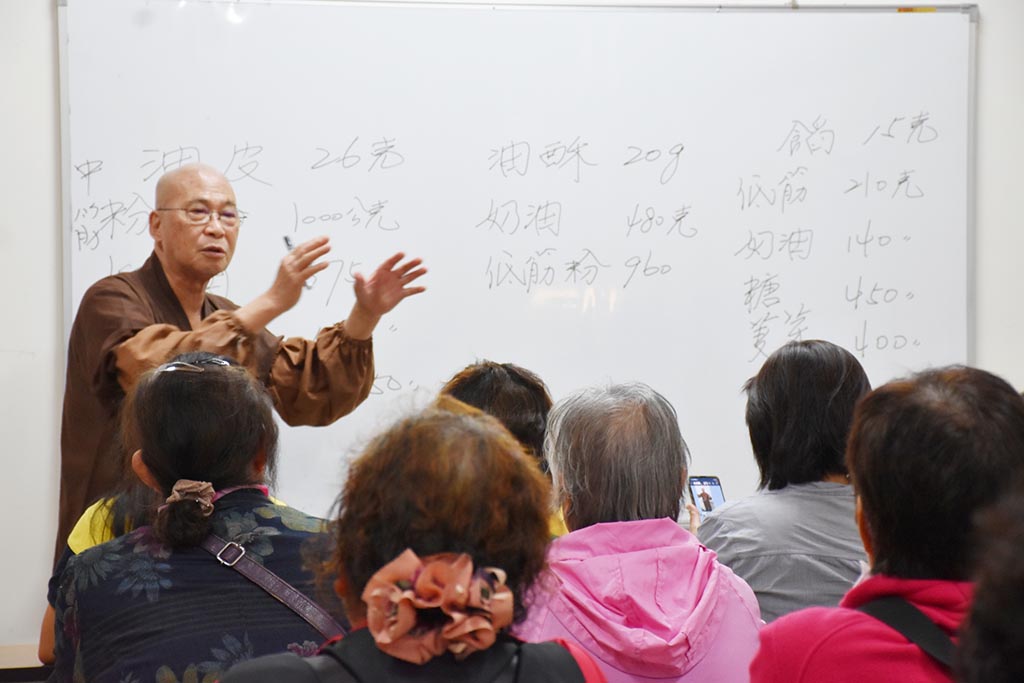 中 油皮 26克
筋粉 1000公克
75
50〃
油酥 20g
奶油 480克
低筋粉 960
餡 15克
低筋 210克
奶油 140〃
糖 450〃
400〃